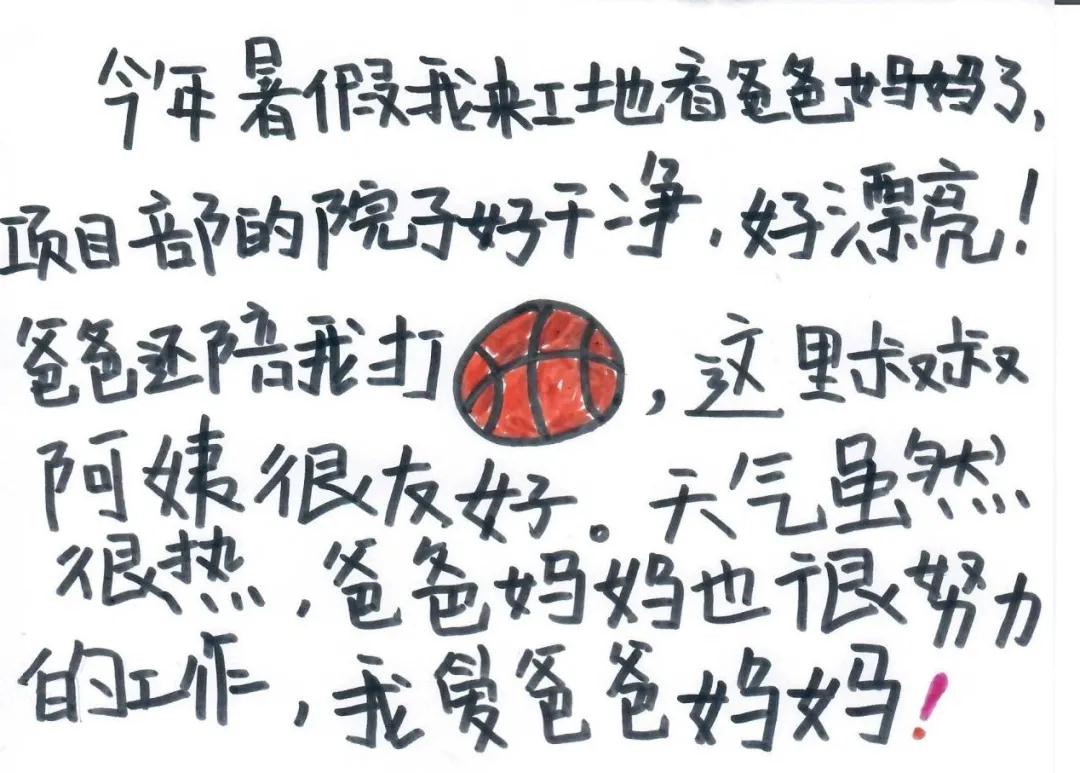 今年暑假我来工地看爸爸妈妈了,
项目部的院子好干净,好漂亮!
爸爸还陪我打,这里叔叔
阿姨很友好。天气虽然
很热,爸爸妈妈也很努力
的工作,我爱爸爸妈妈!